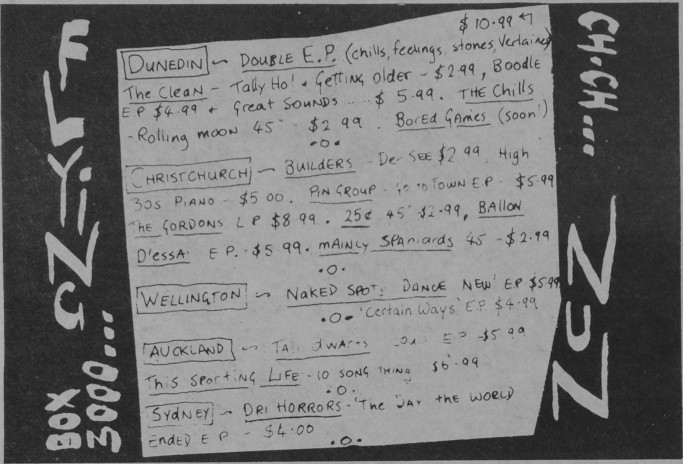 $10.99
DUNEDIN ~ DOUBLE E.P. (chills, feelings, stones, Verlaines)
The CleaN - Tally Ho! + Getting older - $2.99, Boodle
E P $4.99 + Great SOUNDS ..... $ 5.99. THE Chills
- Rolling moon 45" - $2 99. BORED GAMES (soon!)
-o-
CHRISTCHURCH ~ BUILDERS - $2 99. High
30s PIANO - $5 00. PiN GROUP - Go to TOWN E P - $5.99
The GORDONS L P $8 99. 25¢ 45" $2.99, BAllON
D'essai E P. - $5 99. mAiNLy SPANiards 45 - $2.99
.o.
WELLINGTON ~ NAKED SPOTS DANCE NEW' EP $5.99
.o. 'Certain Ways' E.P. $4.99
AUCKLAND ~ Tall dwarfs E P - $5 99
This Sporting LIFE - 10 SONG THING $6.99
.o.
SYDNEY ~ DRI HORRORS - 'The WAY the WORLD
ENDED E P - $4.00
.o.
BOX
3000...
CH.CH...
NZ